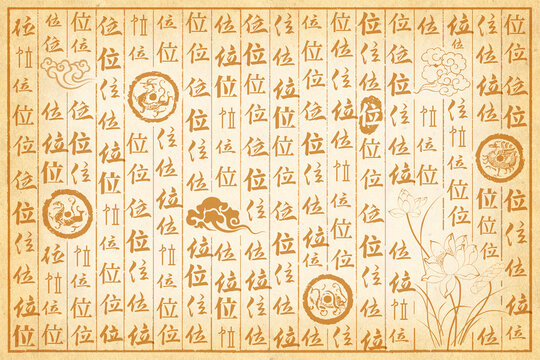 位位位位位位位位位位
位位位位位位位位位位
位位位位位位位
位位位位位位
位位位位位位位位位位
位位位位位位位位位位位
位位位位位位位位位
位位位位位位位位位位
位位位位位位位位位位位
位位位位位位位位位位位
位位位位位位位位位位
位位位位位位位位位位
位位位位位位位位位位
位位位位位位位位位位
位位位位位位位位位位位
位位位位位位位位位位
位位位位位位位位位
位位位位位位位位位位位